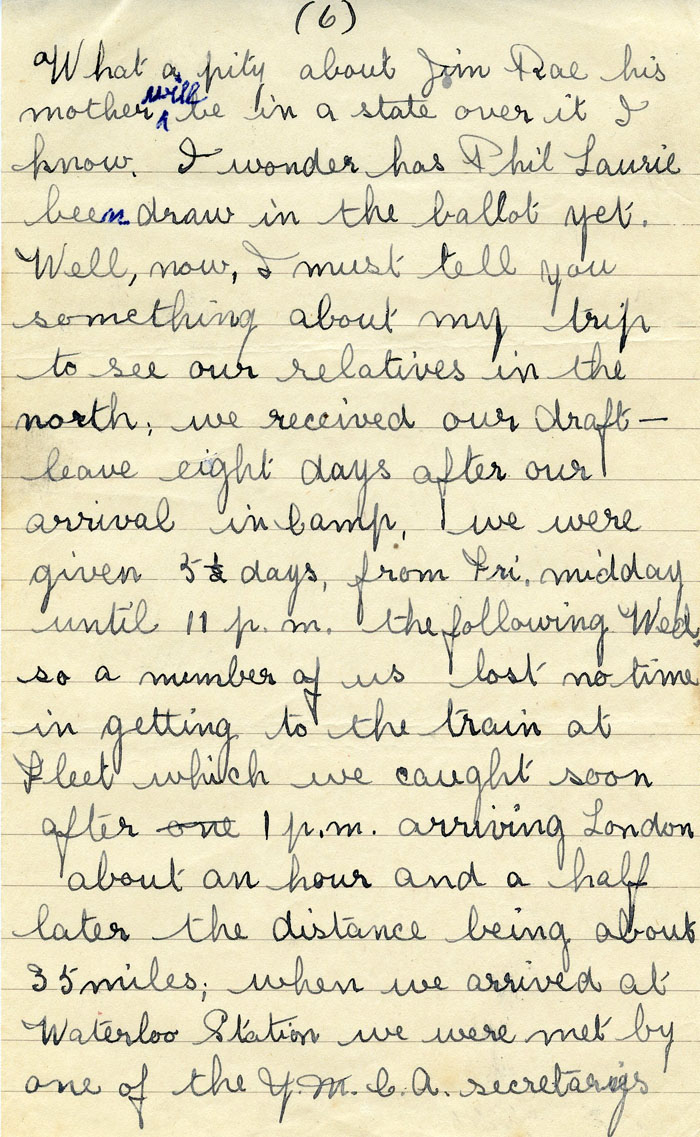 (6)
What a pity about Jim Rae his
mother will be in a state over it I
know. I wonder has Phil Laurie
been draw in the ballot yet.
Well, now, I must tell you
something about my trip
to see our relatives in the
north; we received our draft-
leave eight days after our
arrival in Camp, we were
given 5½ days, from Fri. midday
until 11 p.m. the following Wed,
so a number of us lost no time
in getting to the train at
Fleet which we caught soon
after one 1 p.m. arriving London
about an hour and a half
later the distance being about
35 miles; when we arrived at
Waterloo Station we were met by
one of the Y.M.C.A. secretarys